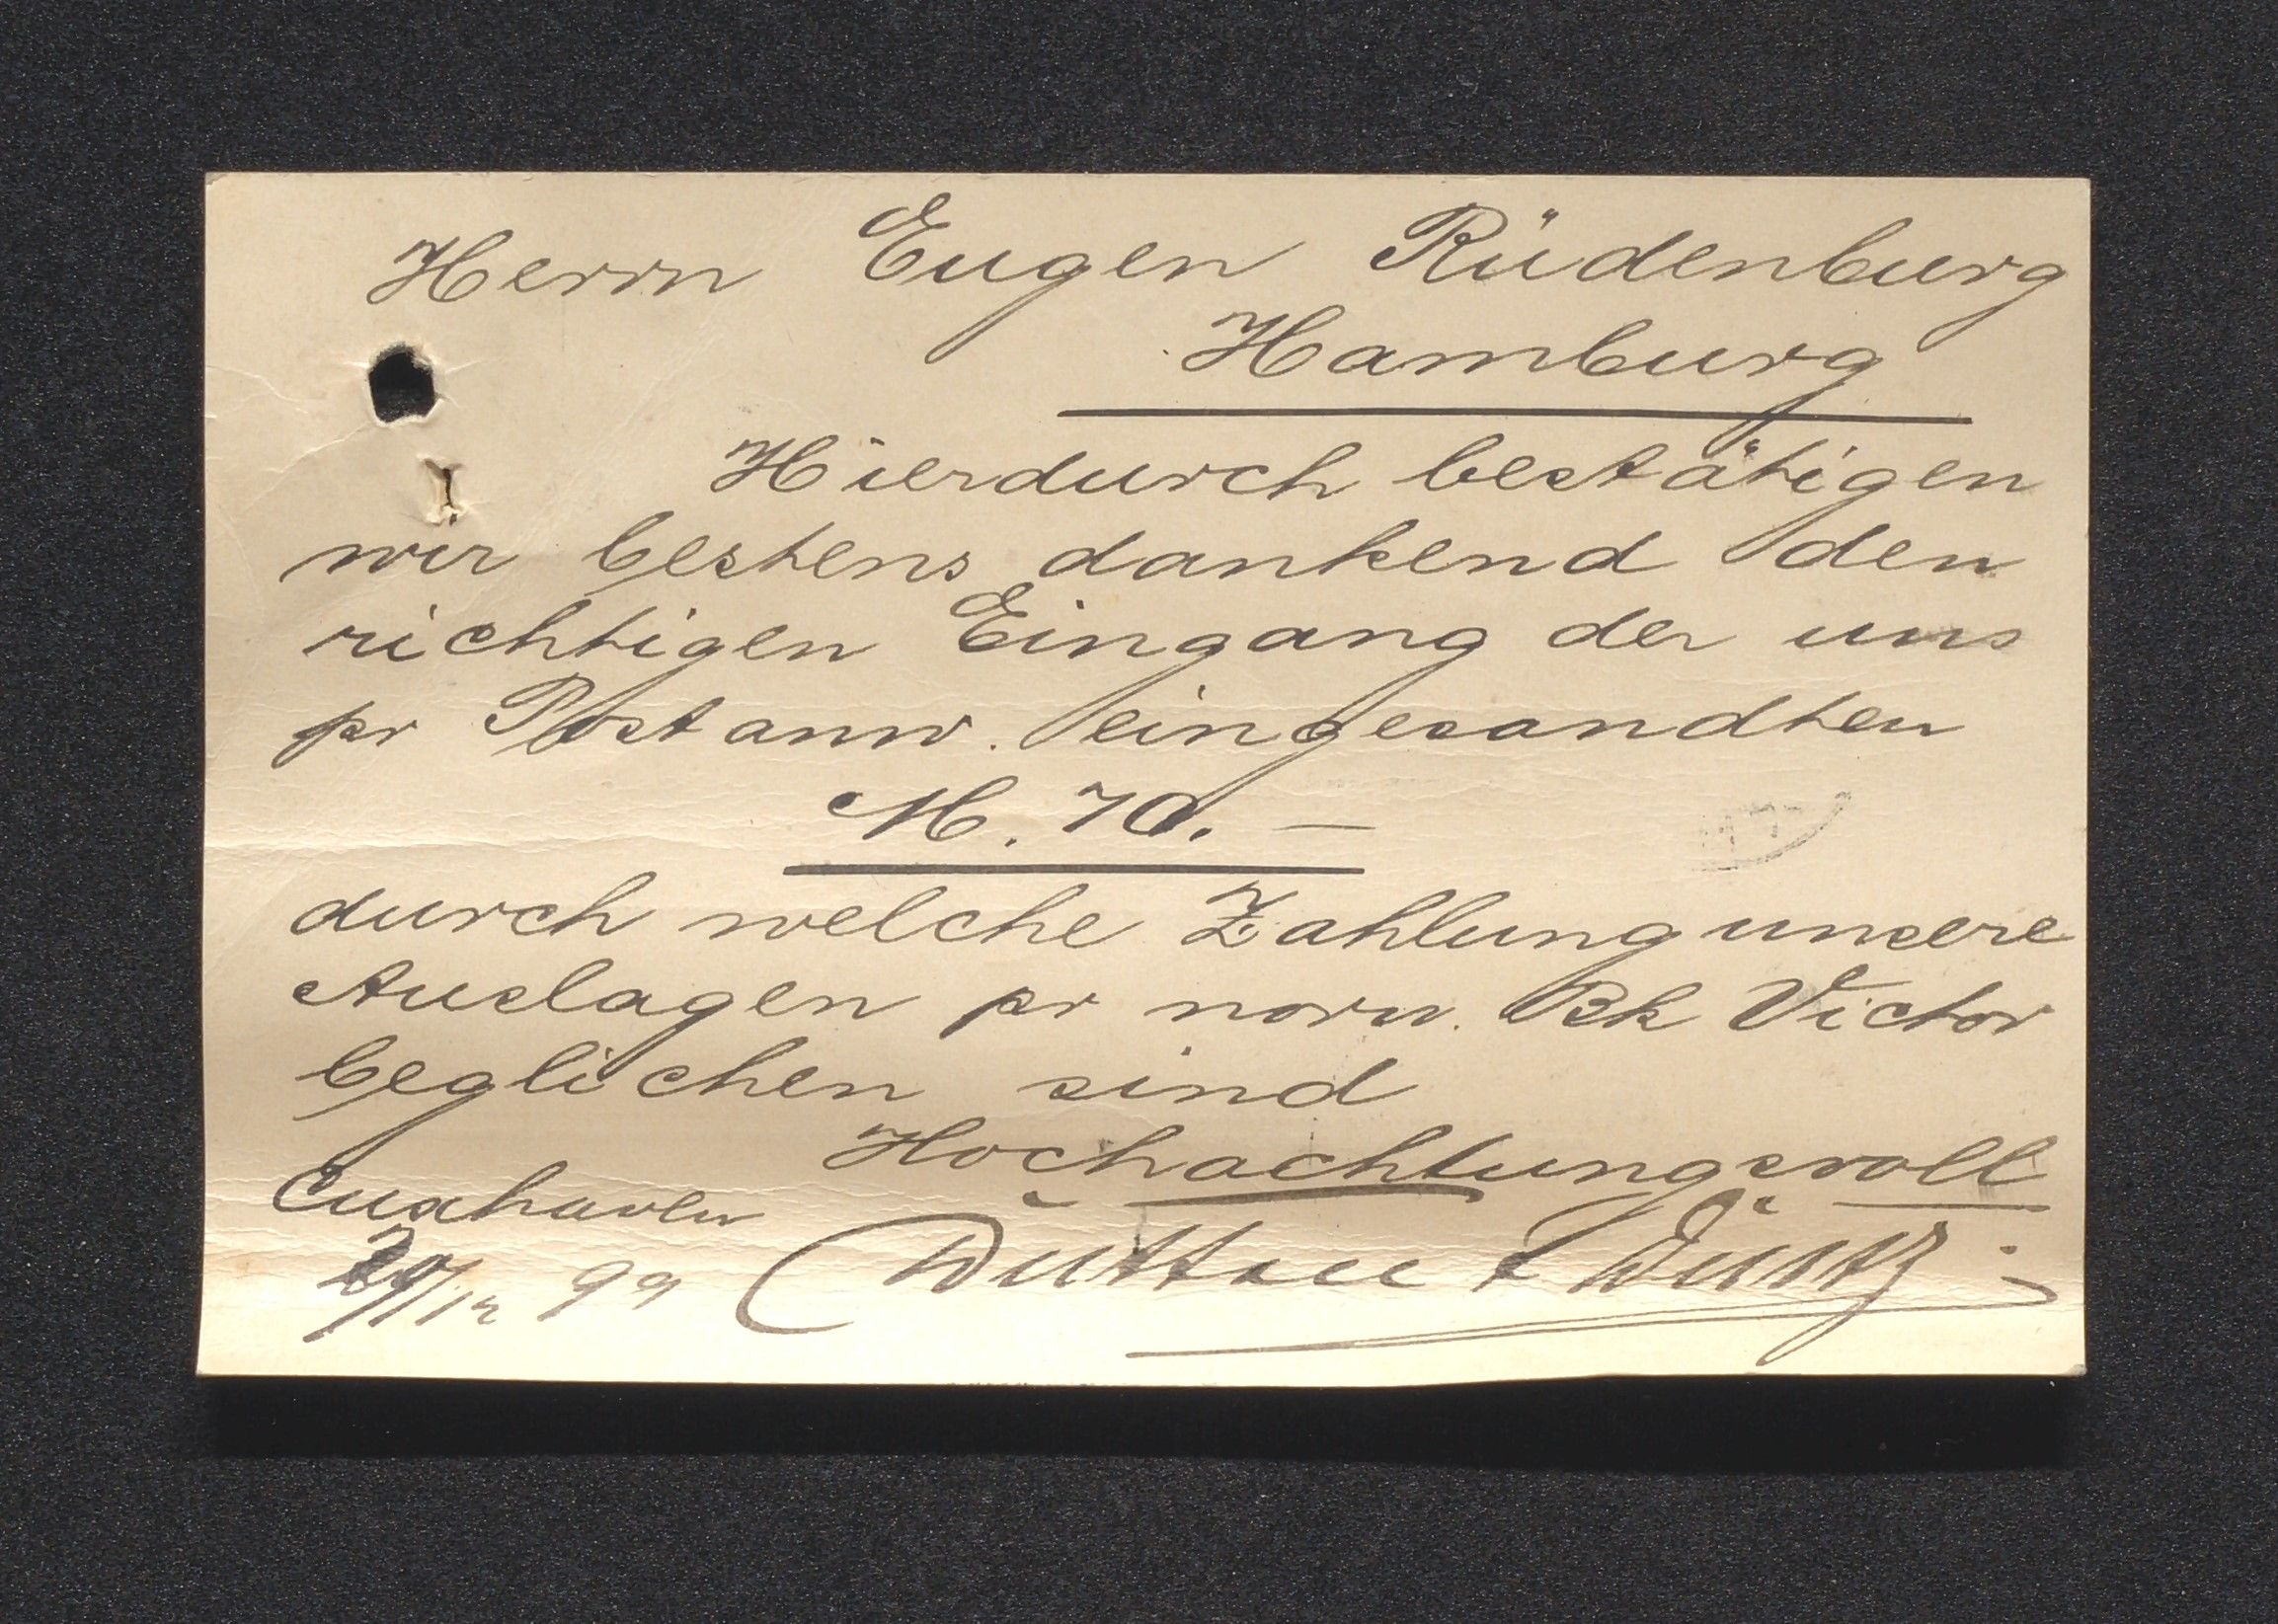 Herrn Eugen Rüdenburg
Hamburg
Hierdurch bestätigen
wir bestens dankend den
richtigen Eingang der uns
pr Postanw. eingesandten
M. 70. —
durch welche Zahlung unsere
Auslagen pr norw. Bk Victor
beglichen sind
Hochachtungsvoll
Cuxhaven
29/12 99